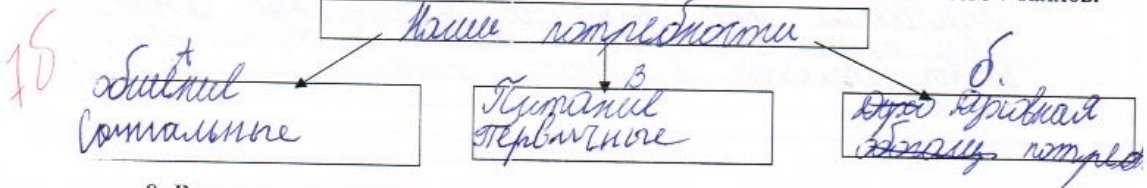 Наши потребности
1б
А
общение
Социальные
В
Питание
Первичные
б.
Духо Духовная
потреб